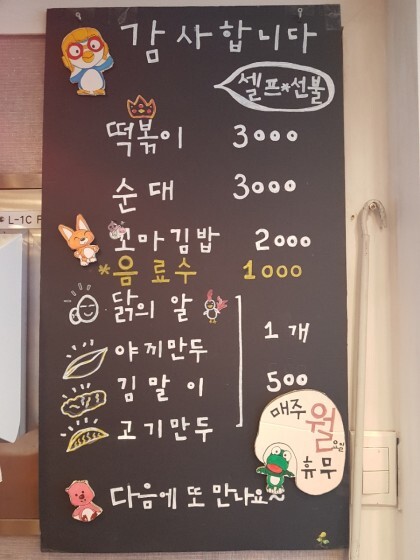 감사합니다
셀프*선불
떡볶이 3000
순대 3000
꼬마김밥 2000
*음료수 1000
닭의 알
야끼만두
김말이
고기만두
1개
500
매주 월요일
휴무
다음에 또 만나요~
L-1C F